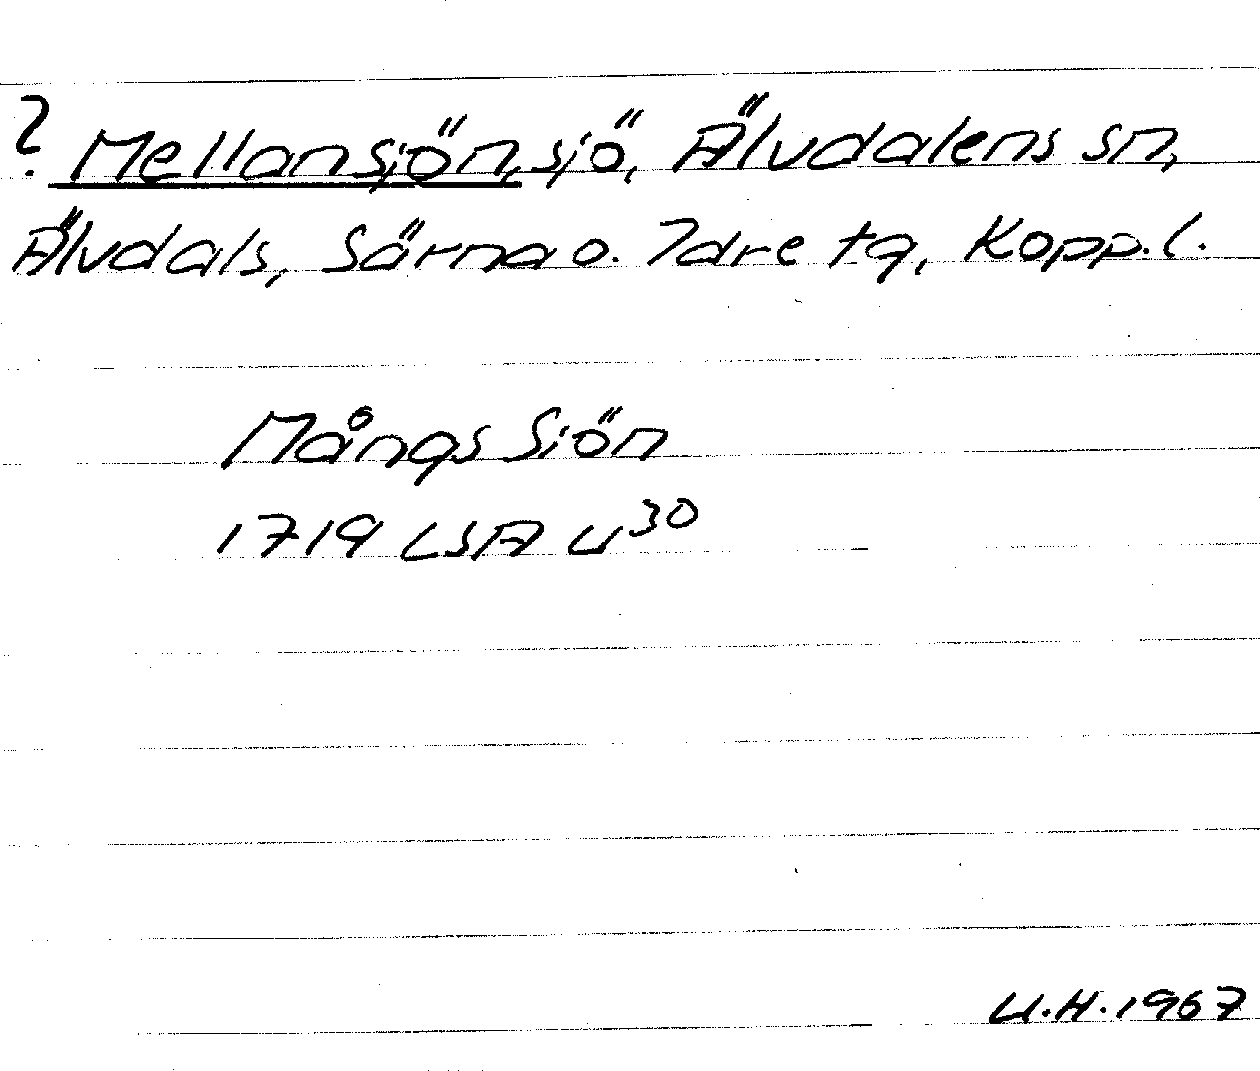 ? Mellansjön, sjö, Älvdalens sn,
Älvdals, Särna o. Idre tg, Kopp. l.
Mångs Siön
1719 LSA U³⁰
U.H. 1967